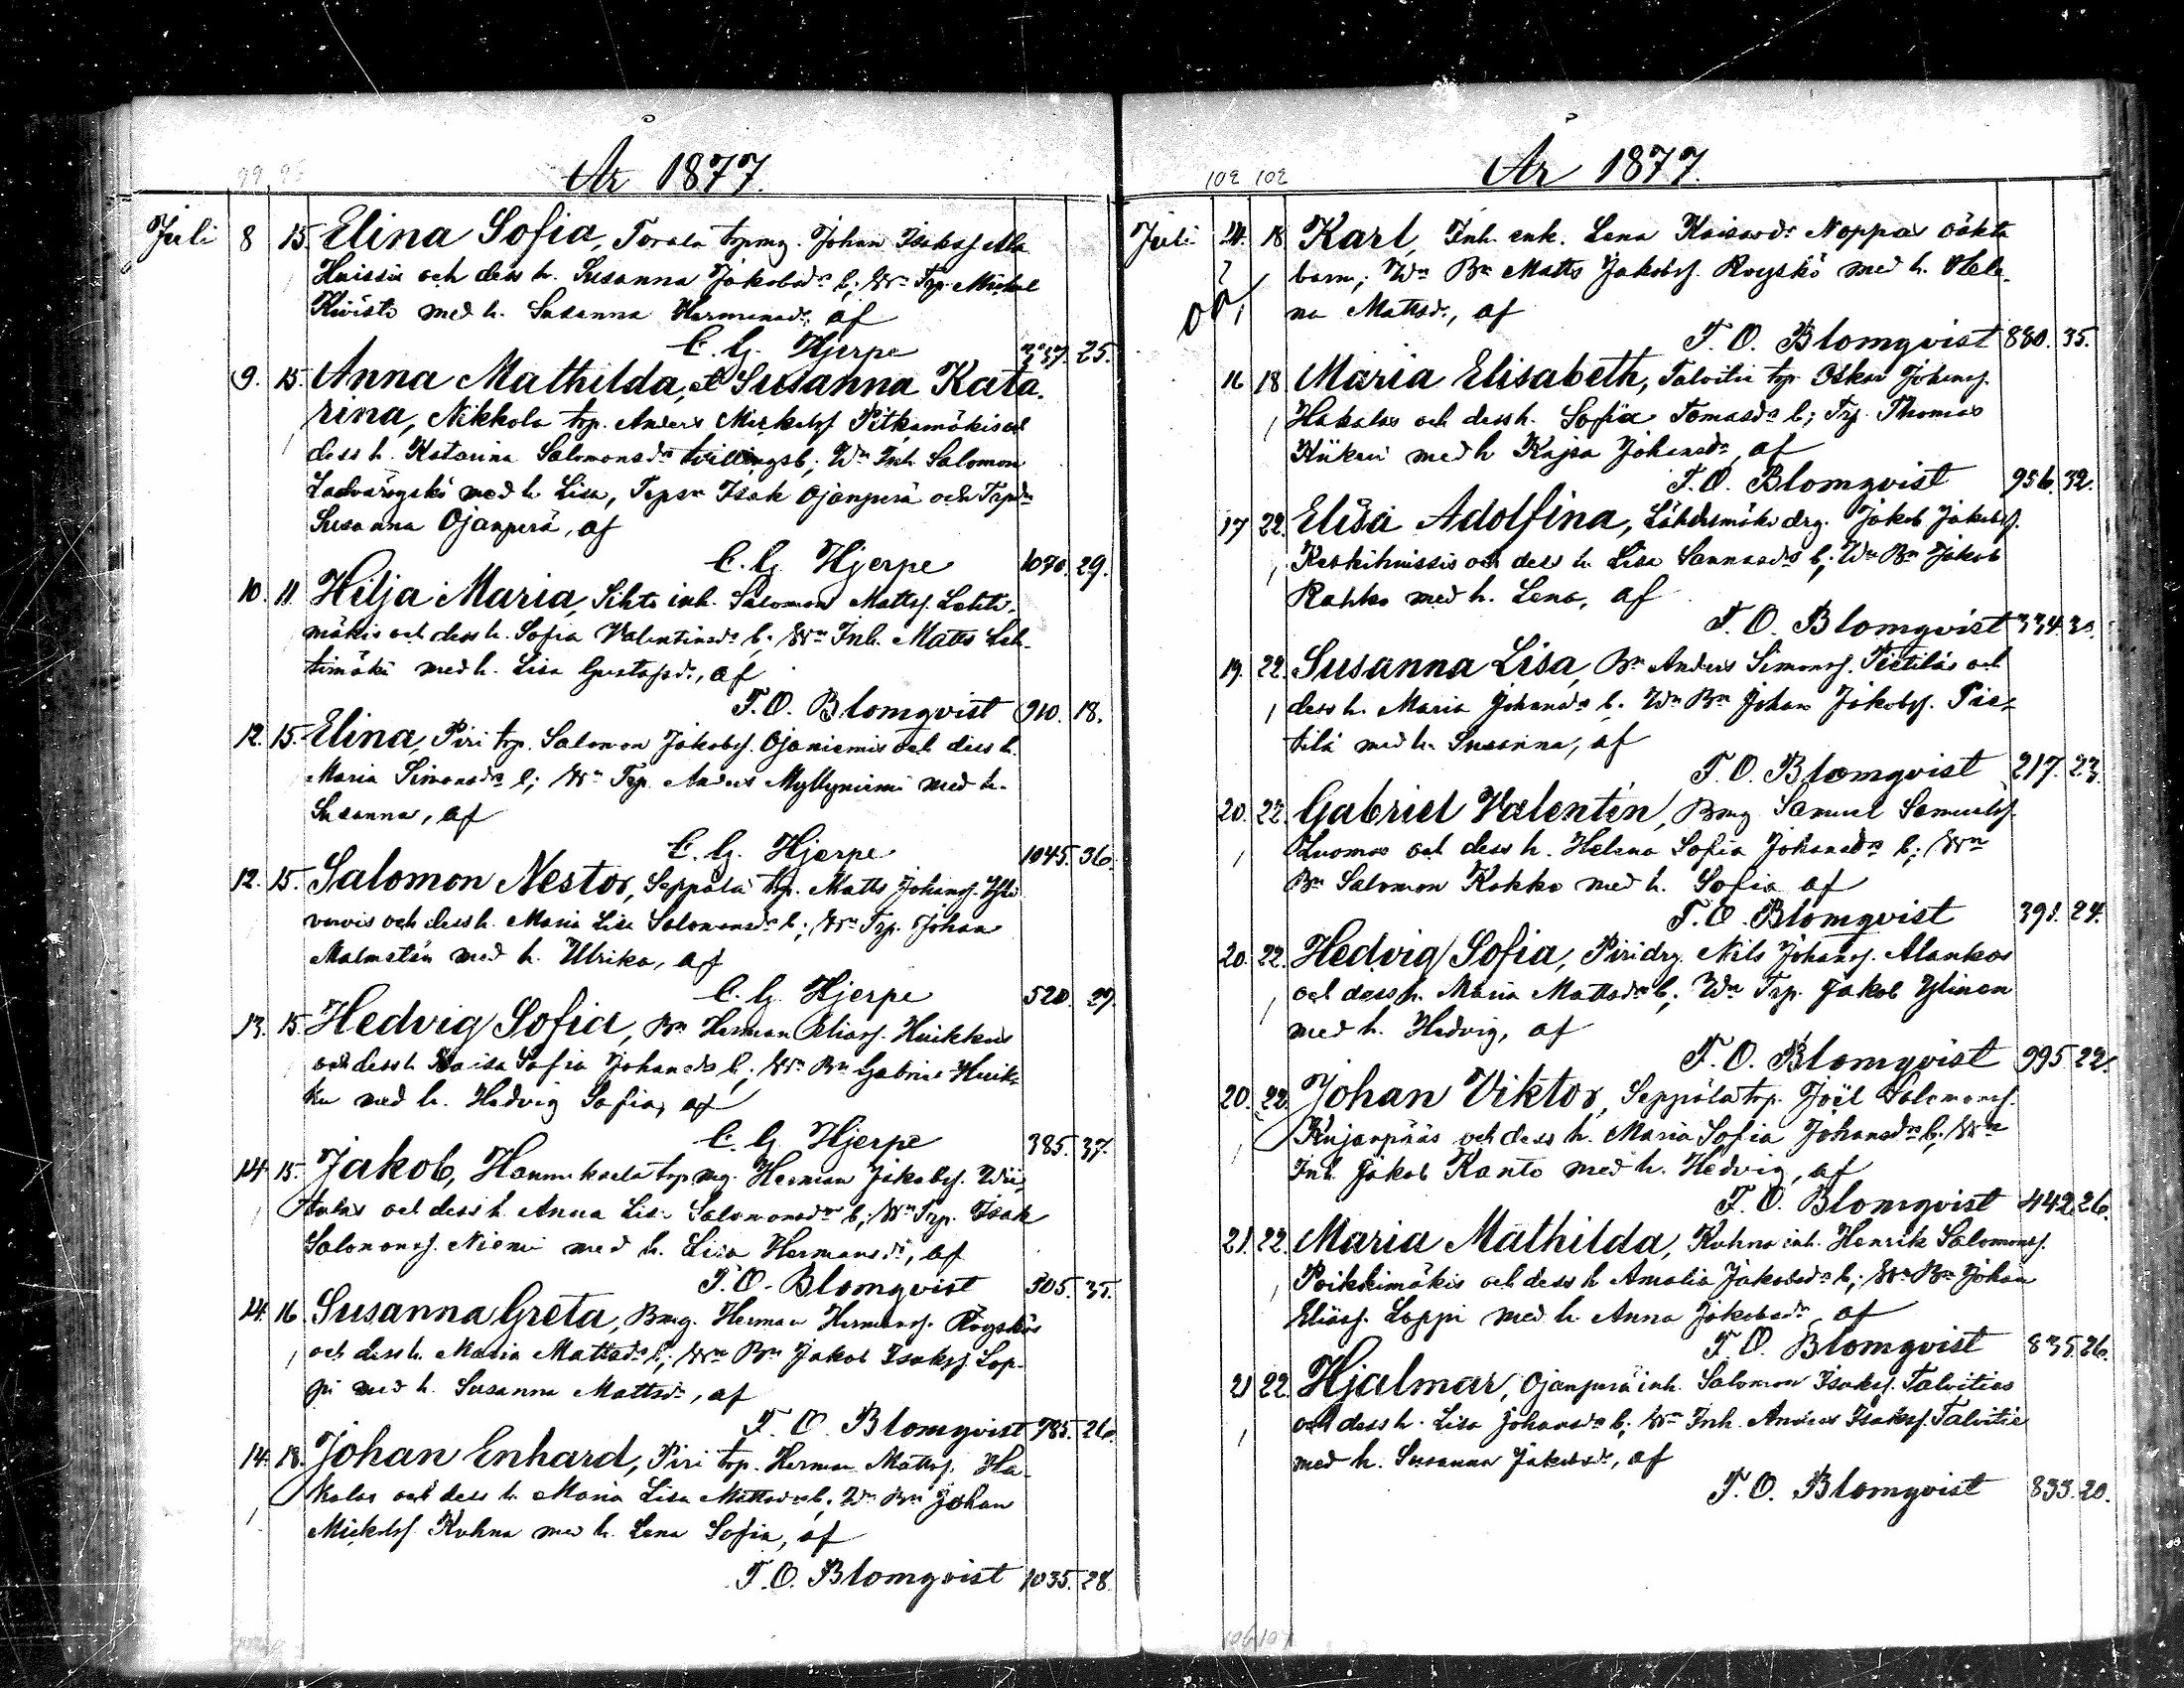 År 1877.
Juli 8 15. Elina Sofia, Torala trpmg. Johan Isaksf. Ala
Huissis och dess h. Susanna Jakobsdr b; Wn Trp. Mickel
Kivistö med h. Susanna Hermansdr, af
C. G. Hjerpe 337. 25.
9. 15. Anna Mathilda, et Susanna Kata-
rina, Nikkola trp. Anders Mickelsf Pitkämäkis och
dess h. Katarina Salomonsdr tvillingsb; Wn Inh. Salomon
med h. Lisa, Trpsn Isak Ojanperä och Trpdr
Susanna Ojanperä, af
C. G. Hjerpe 1070. 29.
10. 11. Hilja Maria, Sihto inh. Salomon Mattsf. Lehti-
mäkis och dess h. Sofia Valentinsdr b; Wn Inh. Matts Leh-
timäki med h. Lisa Gustafsdr, af
F. O. Blomqvist 910. 18.
12. 15. Elina, Piri trp. Salomon Jakobsf. Ojaniemis och dess h.
Maria Simonsdr b; Wn Trp. Anders Myllyniemi med h.
Susanna, af
C. G. Hjerpe 1045. 36.
12. 15. Salomon Nestor, Seppälä trp. Matts Johansf.
och dess h. Maria Lisa Salomonsdr b; Wn Trp. Johan
Malmstén med h. Ulrika, af
C. G. Hjerpe 520. 29.
13. 15. Hedvig Sofia, Bn Herman Eliasf. Huikkus
och dess h Kaisa Sofia Johansdr b; Wn Bn Gabriel Huik-
ku med h. Hedvig Sofia, af
C. G. Hjerpe 385. 37.
14 15. Jakob, trpmg. Herman Jakobsf. Wii-
talas och dess h Anna Lisa Salomonsdr b; Wn Trp. Isak
Salomonsf. Niemi med h. Lisa Hermansdr, af
F. O. Blomqvist 505. 35.
14. 16. Susanna Greta, Bmg. Herman Hermansf. Röyskös
och dess h. Maria Mattsdr b; Wn Bn Jakob Isaksf Lop-
pi med h. Susanna Mattsdr, af
F. O. Blomqvist 785. 26.
14. 18. Johan Enhard, Piri trp. Herman Mattsf. Ha-
kalas och dess h. Maria Lisa Mattsdr b. Wn Bn Johan
Mickelsf Kuhna med h. Lena Sofia, af
F. O. Blomqvist 1035. 28.
År 1877.
Juli 18 Karl, Inh. enk. Lena Kaisasdr Noppas oäkta
barn; Wn Bn Matts Jakobsf. Röyskö med h. Hele-
na Mattsdr, af
F. O. Blomqvist 880. 35.
16 18 Maria Elisabeth, Talvitie trp. Oskar Johansf.
Hakalas och dess h. Sofia Tomasdr b; Trp. Thomas
med h Kajsa Johansdr, af
F. O. Blomqvist 956. 32.
17 22. Elisa Adolfina, drg. Jakob Jakobsf.
Keskihuissis och dess h. Lisa Sannasdr b; Wn Bn Jakob
Rahko med h. Lena, af
F. O. Blomqvist 334.
19. 22. Susanna Lisa, Bn Anders Simonsf. Pietiläs och
dess h. Maria Johansdr b. Wn Bn Johan Jakobsf. Pie-
tilä med h. Susanna, af
F. O. Blomqvist 217. 23.
20. 22. Gabriel Valentin, Bmg Samuel Samuelsf.
Luomas och dess h. Helena Sofia Johansdr b; Wn
Bn Salomon Kokko med h. Sofia af
F. O. Blomqvist 391. 24.
20. 22. Hedvig Sofia, Piri drg. Nils Johansf. Alankos
och dess h. Maria Mattsdr b; Wn Trp. Jakob Ylinen
med h. Hedvig, af
F. O. Blomqvist 995. 22.
20. 22. Johan Viktor, Seppälä trp. Joël Salomonsf.
Kujanpääs och dess h. Maria Sofia Johansdr b; Wn
Inh. Jakob Kanto med h. Hedvig, af
F. O. Blomqvist 442. 26.
21. 22. Maria Mathilda, Kuhna inh. Henrik Salomonsf.
Poikkimäkis och dess h Amalia Jakobsdr b; Wn Bn Johan
Eliasf. Loppi med h. Anna Jakobsdr, af
F. O. Blomqvist 835. 26.
21 22. Hjalmar, Ojanperä inh. Salomon Isaksf. Talvities
och dess h. Lisa Johansdr b; Wn Inh. Anders Isaksf. Talvitie
med h. Susanna Jakobsdr, af
F. O. Blomqvist 833. 20.